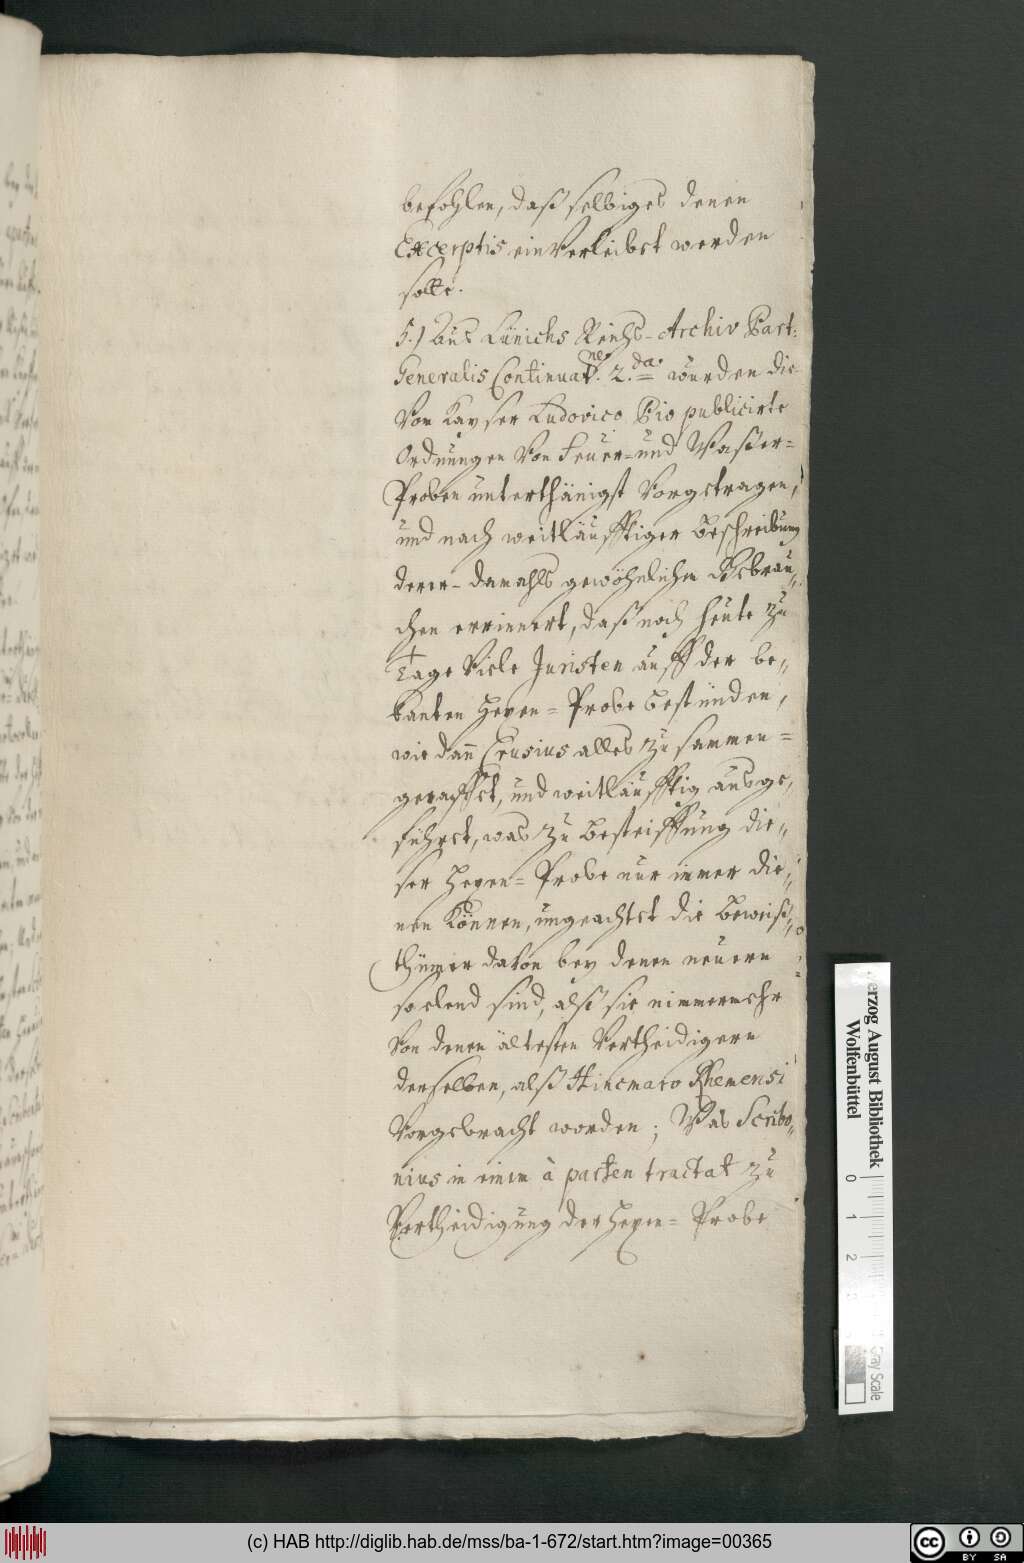 befohlen, daß selbiges denen
Excerptis einverleibet werden
solte.
5.) Aus Lünichs Reichs-Archiv Part:
Generalis Continuat.ne 2.da wurden die
Vom Kayser Ludovico Pio publicirte
Ordnungen von Feuer- und Waßer=
Proben unterthänigst vorgetragen,
und nach weitläufftiger Beschreibung
derer- damahls gewöhnlichen Gebräu„
chen errinnert, daß noch heute zu
Tage Viele Juristen auff der be„
kanten Hexen= Probe bestünden,
wie dann Crusius alles zusammen=
geraffet, und weitläufftig ausge„
führet, was zu Besteiffung die„
ser Hexen= Probe nur immer die„
nen können, ungeachtet die Beweiß„
thümer davon bey denen neuern
so elend sind, alß sie nimmermehr
Von denen ältesten Vertheidigern
derselben, alß Hincmaro Rhemensi
Vorgebracht worden; Was Scribo„
nius in einem à parten tractat zu
Vertheidigung der Hexen= Probe
Herzog August Bibliothek
Wolfenbüttel
0 1 2 3
Gray Scale
(c) HAB http://diglib.hab.de/mss/ba-1-672/start.htm?image=00365
cc BY SA